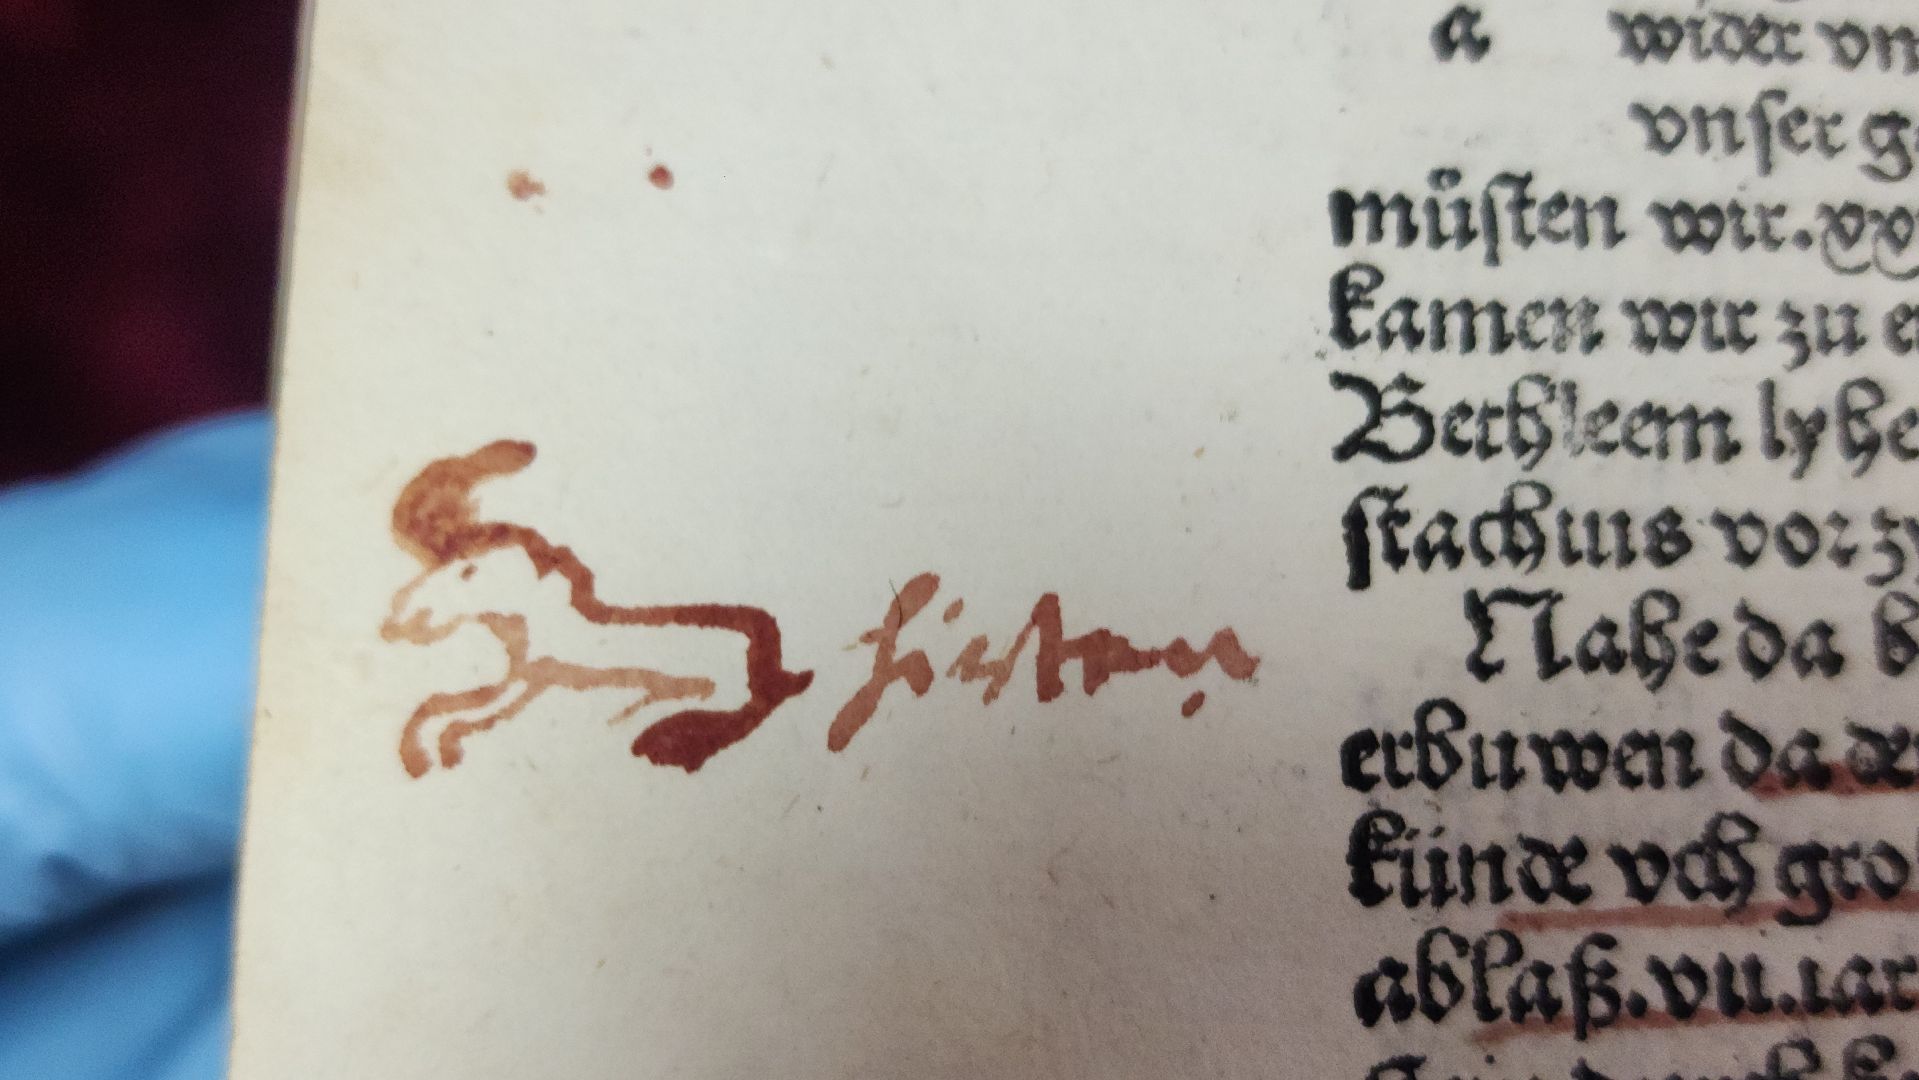 a wider vn
vnser g
müsten wir.xx
kamen wir zu e
Bethleem lyhe
stachius vor zy
Nahe da b
erbuwen da de
künde vch gro
ablaß.vii.iar